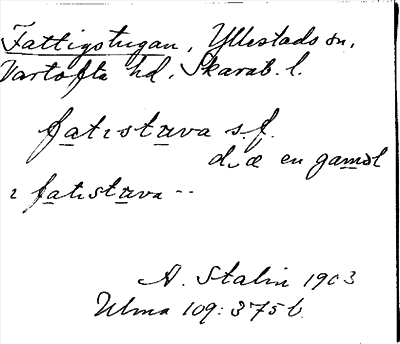 Fattigstugan, Yllestads sn,
Vartofta hd, Skarab. l.
fatıstuva s.f.
d. æ en gaməl
ı fatıstuva --
A. Stalin 1903
Ulma 109: 375 b.